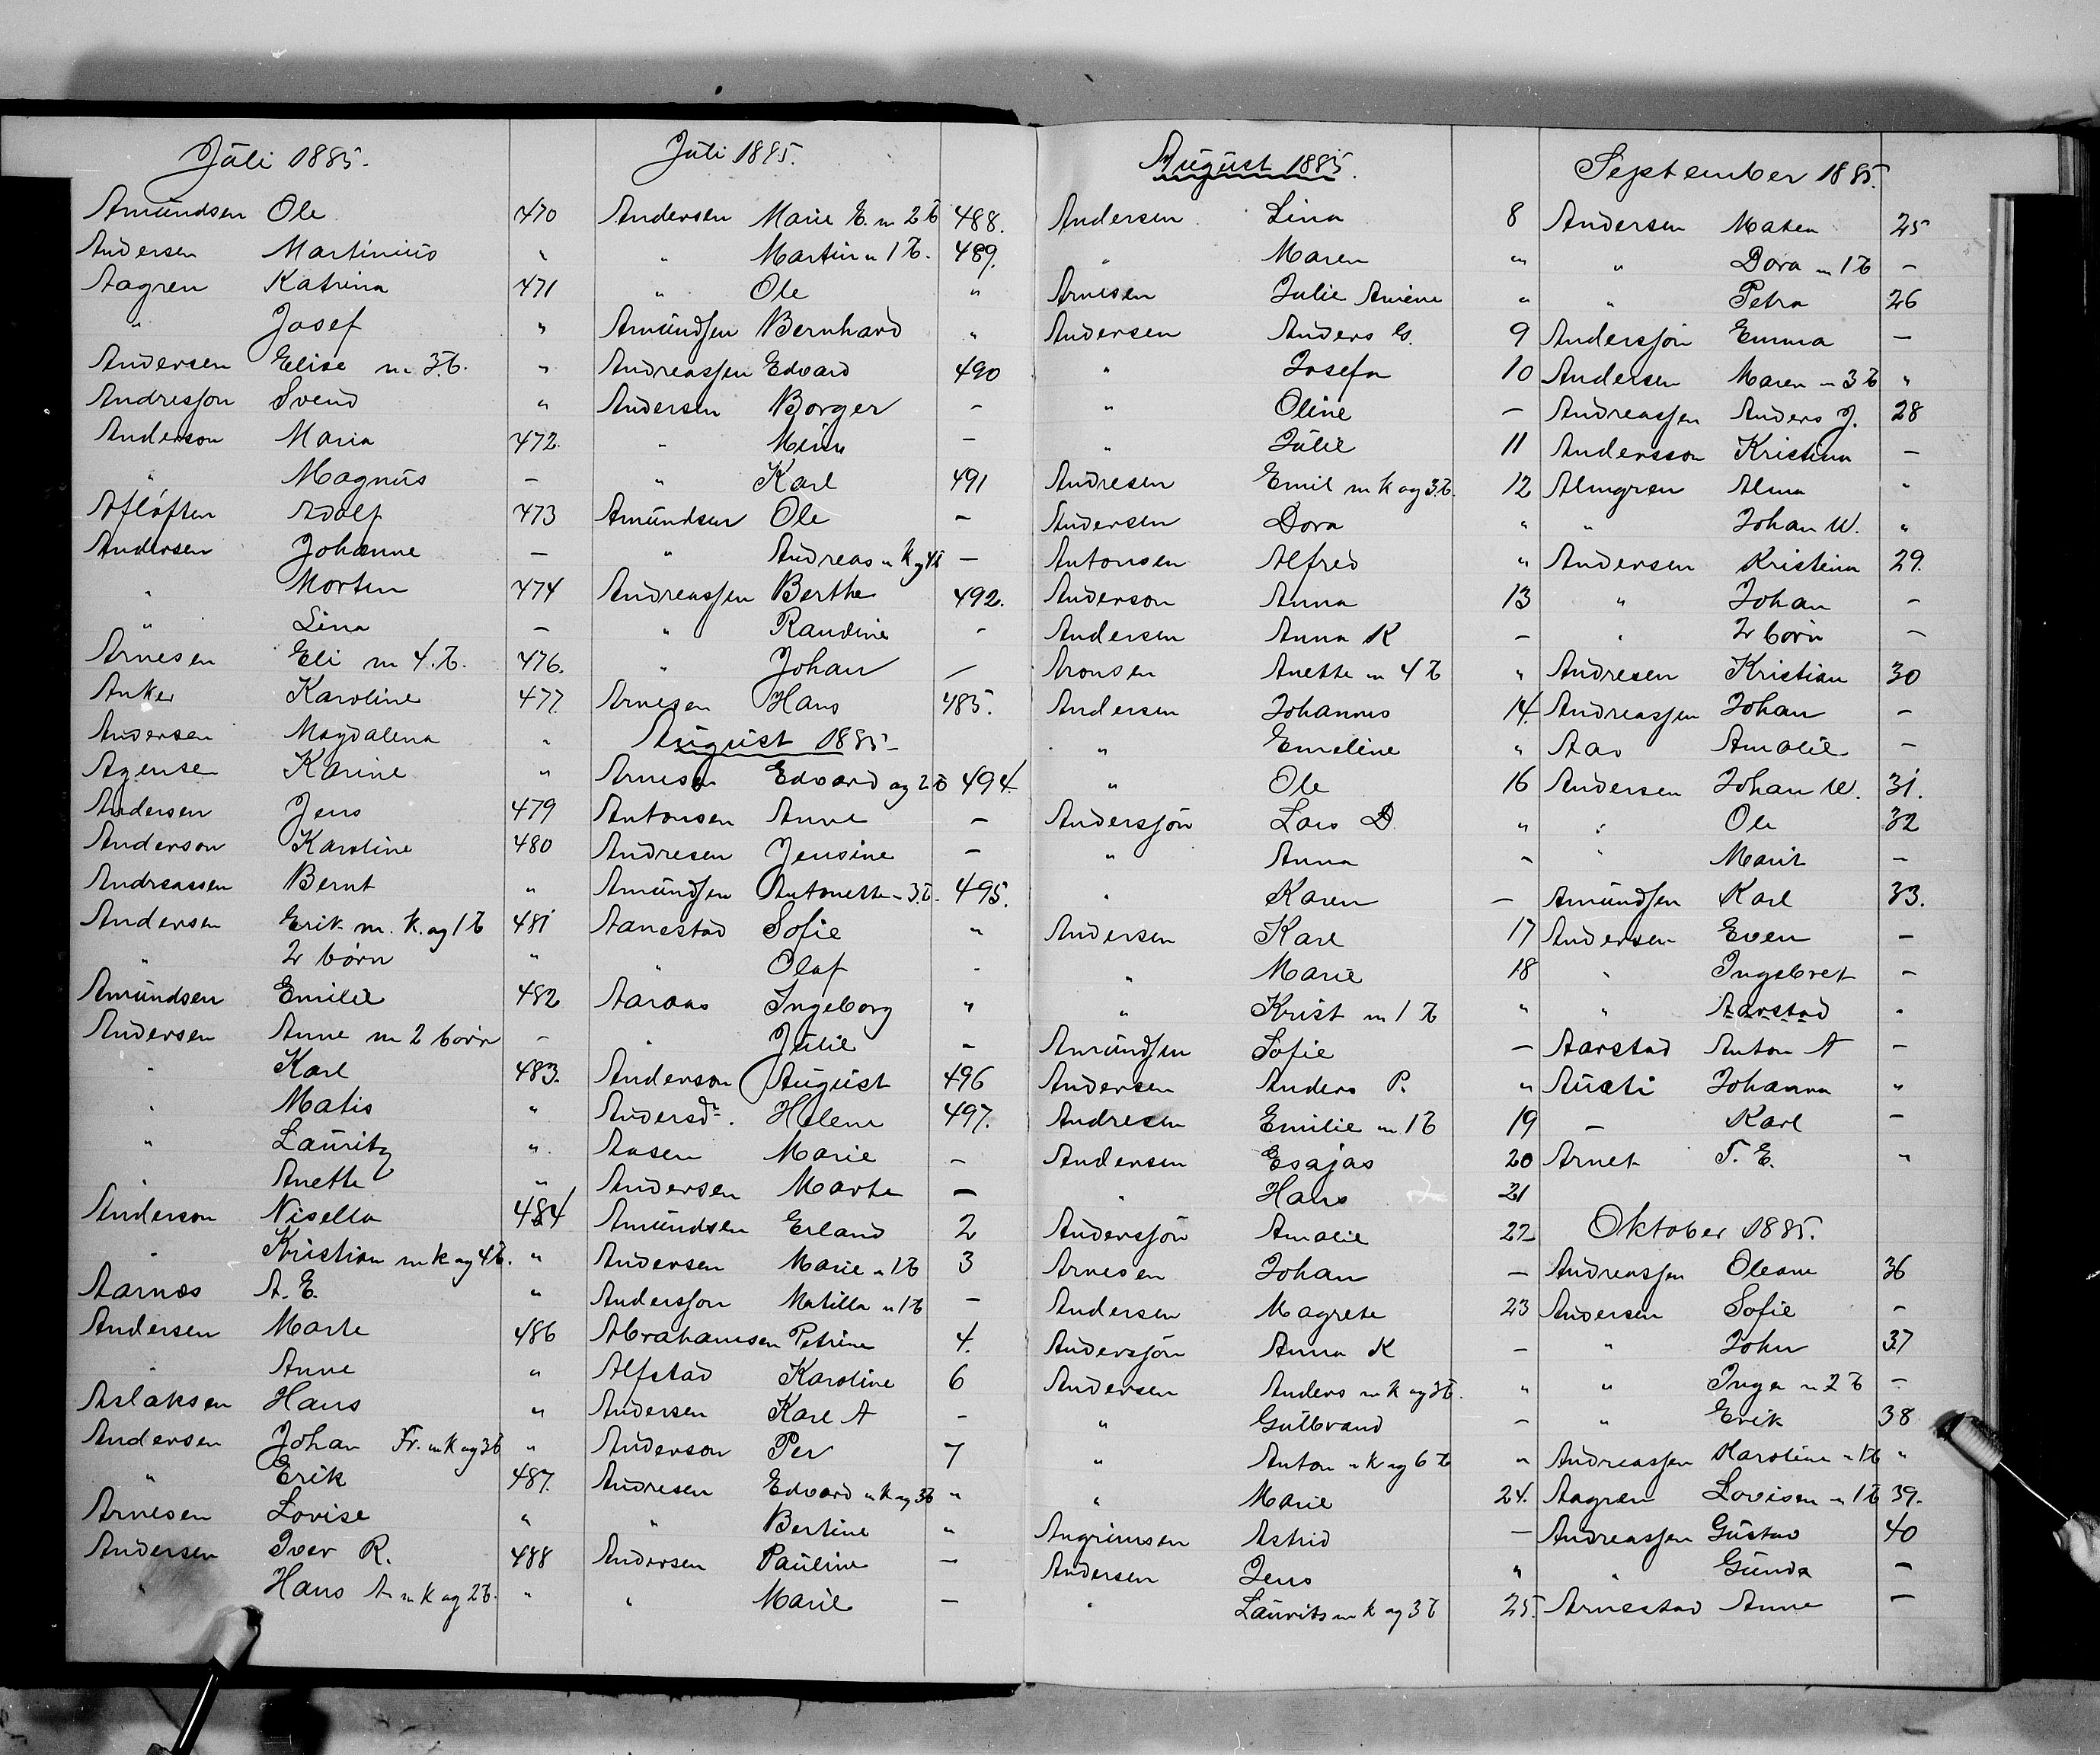 Juli 1885.
Amundsen Ole 470
Andersen Martinius "
Aagren Katrina 471
" Josef "
Andersen Elise m 3 b. "
Andresson Svend "
Anderson Maria 472.
" Magnus –
Afløften Adolf 473
Andersen Johanne –
" Morten 474
" Lina –
Arnesen Eli m 4. b. 476.
Anker Karoline 477.
Andersen Magdalena "
Karine "
Andersen Jens 479
Anderson Karoline 480
Andreassen Bernt "
Andersen Erik m. k. og 1 b 481
" 2 børn "
Amundsen Emilie 482
Andersen Anne m 2 børn –
" Karl 483.
" Matis "
" Lauritz "
" Anette "
Anderson Nisella 484
" Kristian m k og 4 b. "
Aarnæs A. E. "
Andersen Marte 486
" Anne "
Aslaksen Hans "
Andersen Johan Fr. m k og 3 b "
" Erik 487.
Arnesen Lovise "
Andersen Iver R. 488
" Hans A m k og 2 b. "
Juli 1885.
Andersen Marie E. m 2 b 488.
" Martin m 1 b. 489.
" Ole "
Amundsen Bernhard "
Andreassen Edvard 490
Andersen Borger –
" –
" Karl 491
Amundsen Ole –
" Andreas m k og 4 b –
Andreassen Berthe 492.
" Randine –
" Johan –
Arnesen Hans 485.
August 1885–
Arnesen Edvard og 2 b 494.
Antonsen Anne –
Andresen Jensine –
Amundsen Antonette m 3 b. 495.
Aanestad Sofie "
" Olaf –
Aaraas Ingeborg "
" Julie –
Anderson August 496
Andersdr. Helene 497.
Aasen Marie –
Andersen Marte –
Amundsen Erland 2
Andersen Marie m 1 b 3
Andersson Matilla m 1 b –
Abrahamsen Petrine 4.
Alfstad Karoline 6
Andersen Karl A –
Anderson Per 7
Andresen Edvard m k og 3 b "
" Bertine "
Andersen Pauline –
" Marie –
August 1885.
Andersen Lina 8
" Maren "
Arnesen Julie Amine "
Andersen Anders G. 9
" Josefa 10
" Oline –
" Julie 11
Andresen Emil m k og 3 b. 12
Andersen Dora "
Antonsen Alfred "
Anderson Anna 13
Andersen Anna K –
Aronsen Anette m 4 b "
Andersen Johannes 14
" Emeline "
" Ole 16
Andersson Lars D. "
" Anna –
" Karen –
Andersen Karl 17
" Marie 18
" Krist m 1 b "
Amundsen Sofie –
Andersen Anders P. "
Andresen Emilie m 1 b 19
Andersen Esajas 20
" Hans 21
Andersson Amalie 22
Arnesen Johan –
Andersen Magrete 23
Andersson Anna K –
Andersen Anders m k og 3 b. "
" Gulbrand –
" Anton m k og 6 b "
" Marie 24.
Angrimsen Astrid –
Andersen Jens "
" Laurits m k og 3 b 25.
September 1885.
Andersen Maten 25
" Dora m 1 b –
" Petra 26
Andersson Emma –
Andersen Maren m 3 b "
Andreassen Anders J. 28
Andersson Kristina –
Almgren Alma "
" Johan W. "
Andersen Kristina 29.
" Johan –
" 2 børn –
Andresen Kristian 30
Andreassen Johan –
Aas Amalie –
Andersen Johan W. 31.
" Ole 32
" Marit –
Amundsen Karl 33.
Andersen Even –
" Ingebret –
" Aarstad "
Aarstad Anton A –
Austi Johanna "
– Karl –
Arnet T. E. "
Oktober 1885.
Andreassen Oleane 36
Andersen Sofie –
" John 37
" Inga m 2 b –
" Erik 38
Andreassen Karoline m 1 b "
Aagren Lovisen m 1 b 39.
Andreassen Gustav 40
" Gunda –
Arnestad Anne –